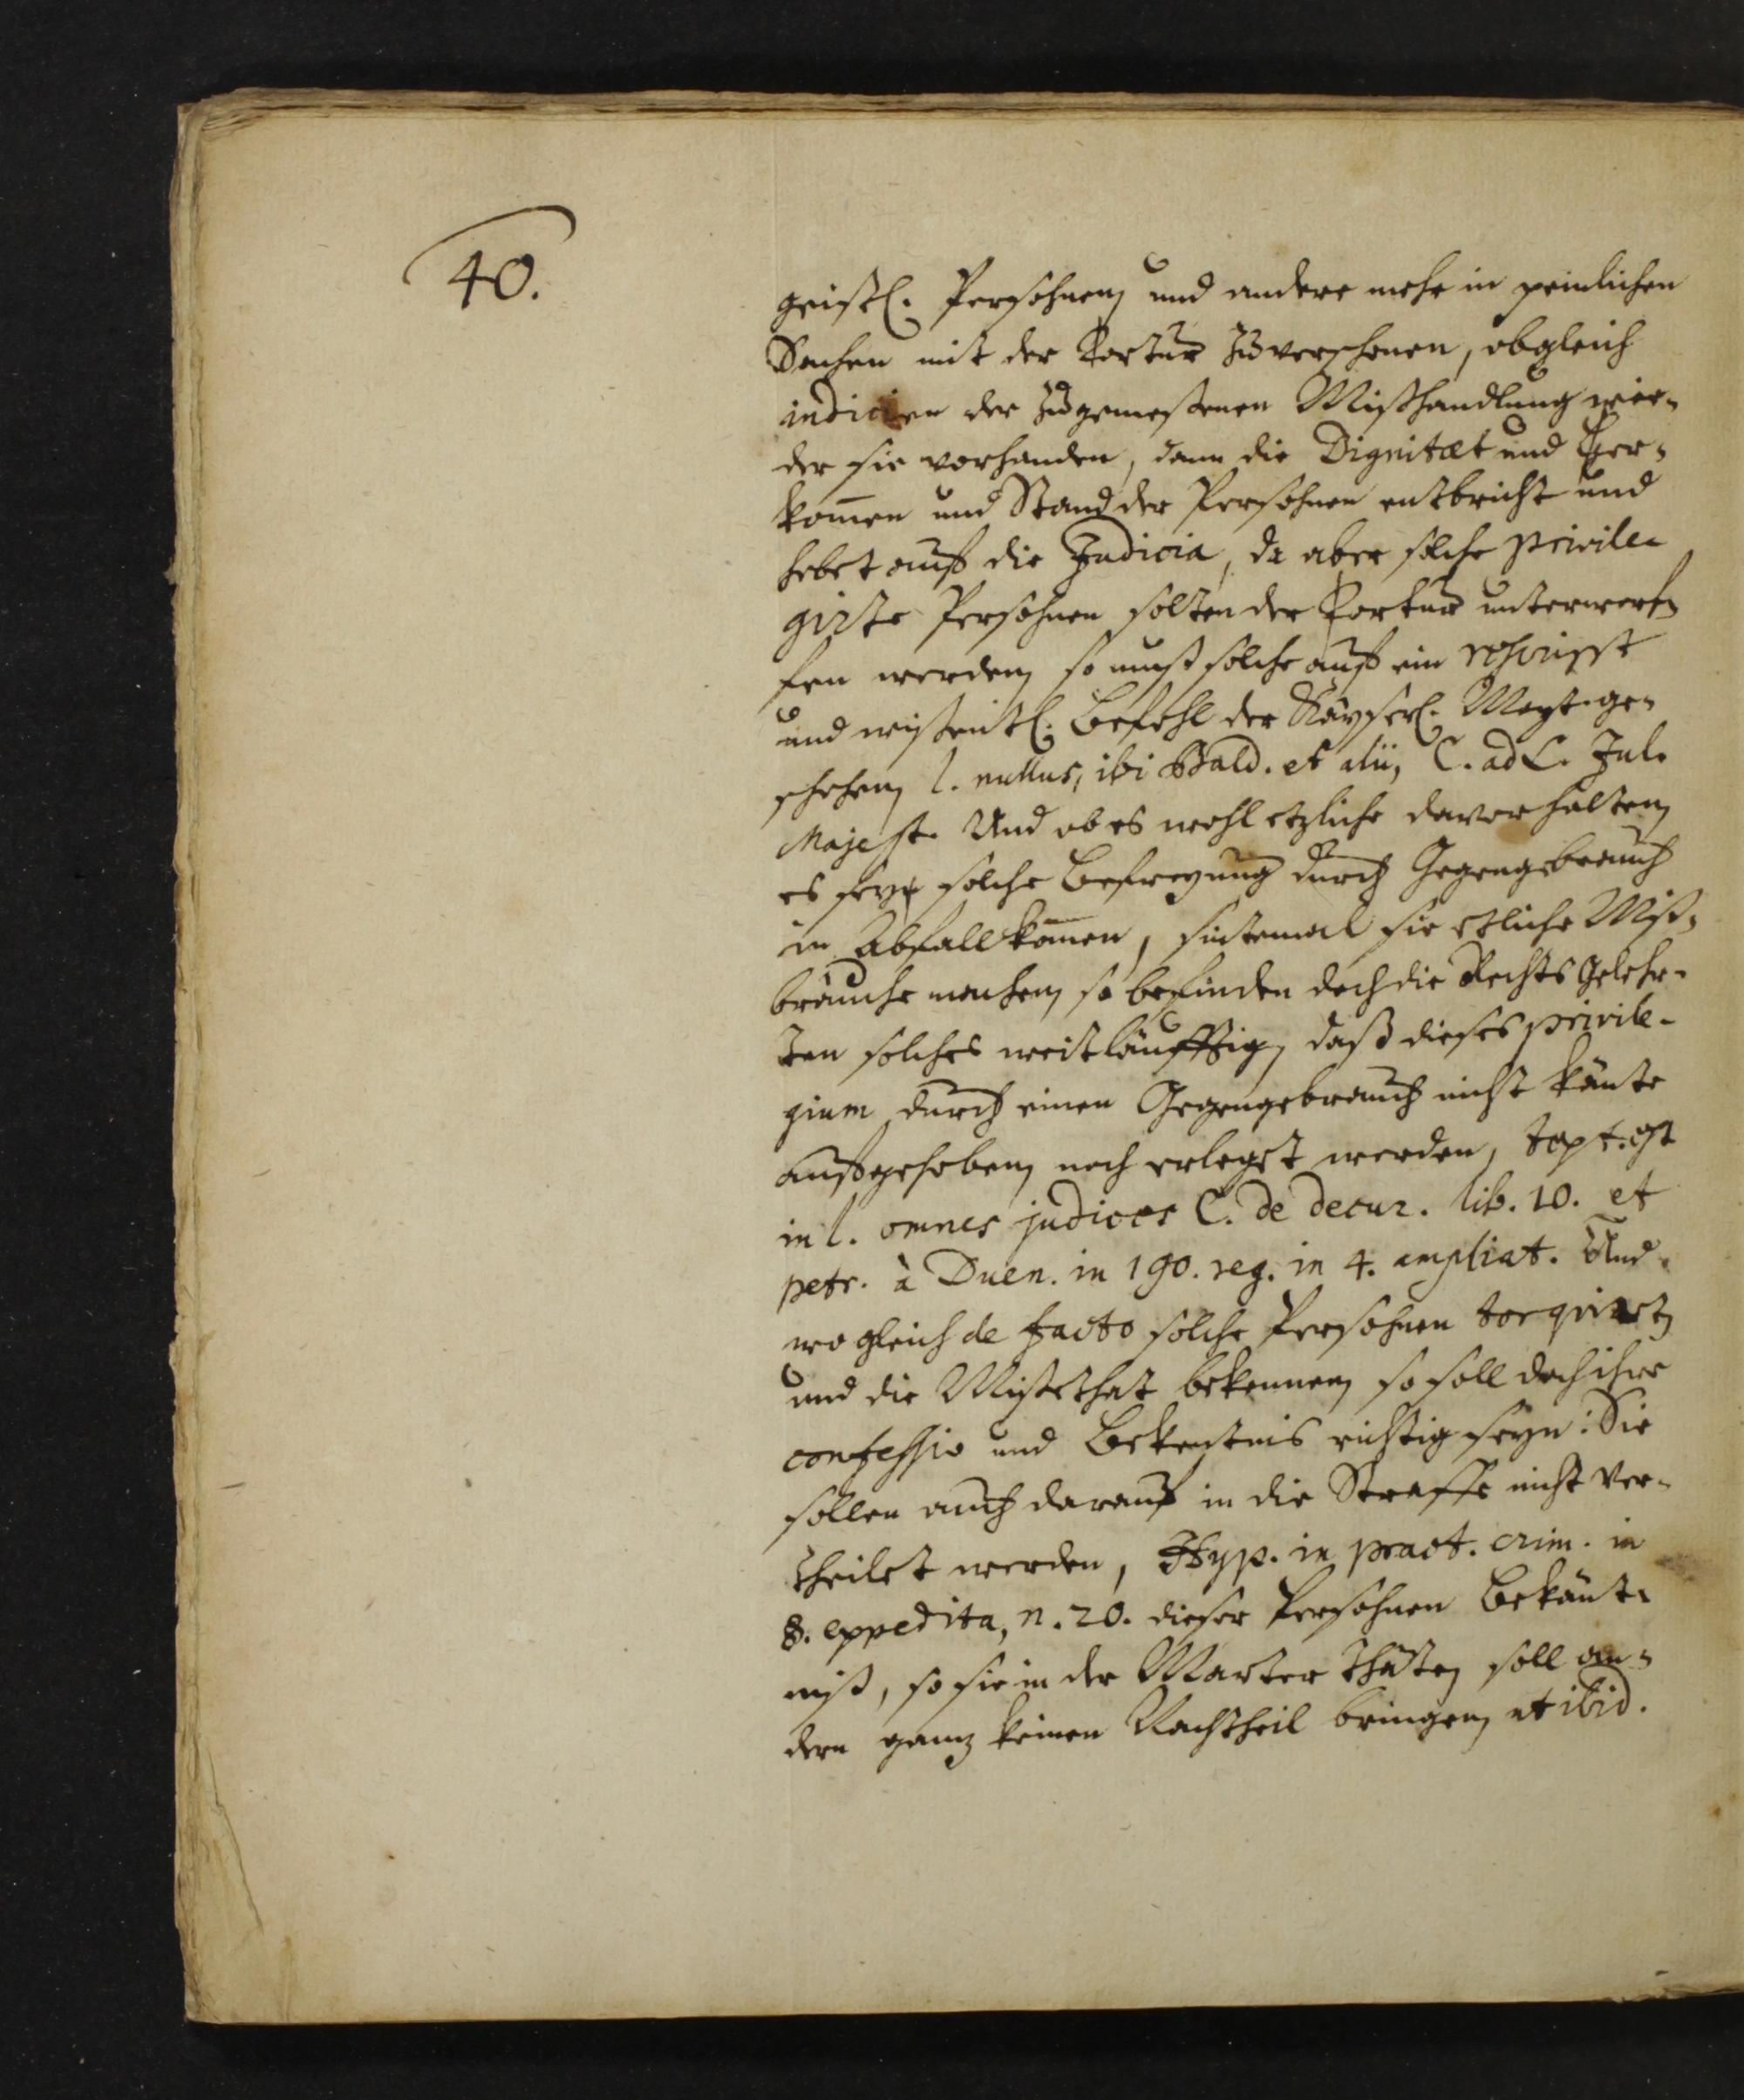 40.
geistl. Persohnen und andere mehr in peinlichen
Sachen mit der Tortur zuverschonen, obgleich
indicien der zugemeßenen Mißhandlung wie-
der sie vorhanden, dann die Dignitæt und Her-
kom̅en und Stand der Persohnen entbricht und
hebet auff die Indicia, da aber solche privile-
girte Persohnen solten der Tortur unterworf-
fen werden, so muß solches auß ein
und wißentl. Befehl der Kayserl. Mayt. ge-
schehen l. nullus, ibi Bald. et alii, C. ad L. Jul.
Majest. Und ob es wohl etzliche davor halten
es seye solche Befreyung durch Gegengebrauch
in Abfall kom̅en, sintemal sie etliche Miß-
bräuche machen, so befinden doch die Rechts Gelehr-
ten solches weitläufftig, daß dieses privile-
gium durch einen Gegengebrauch nicht könte
auffgehoben noch erleget werden,
in l. omnes judices C. de decur. lib. 10. et
petr. à Duen. in 190. reg. in 4. ampliat. Und
wo gleich de facto solche Persohnen torquiret
und die Mißethat bekennen, so soll doch ihre
confessio und Bekentnis nichtig seyn: Sie
sollen auch darauff in die Straffe nicht ver-
theilet werden, Hyp. in pract. crim. in
§. expedita, n. 20. dieser Persohnen Bekänt-
niß, so sie in der Marter thäten, soll an-
dern ganz keinen Nachtheil bringen, ut ibid.